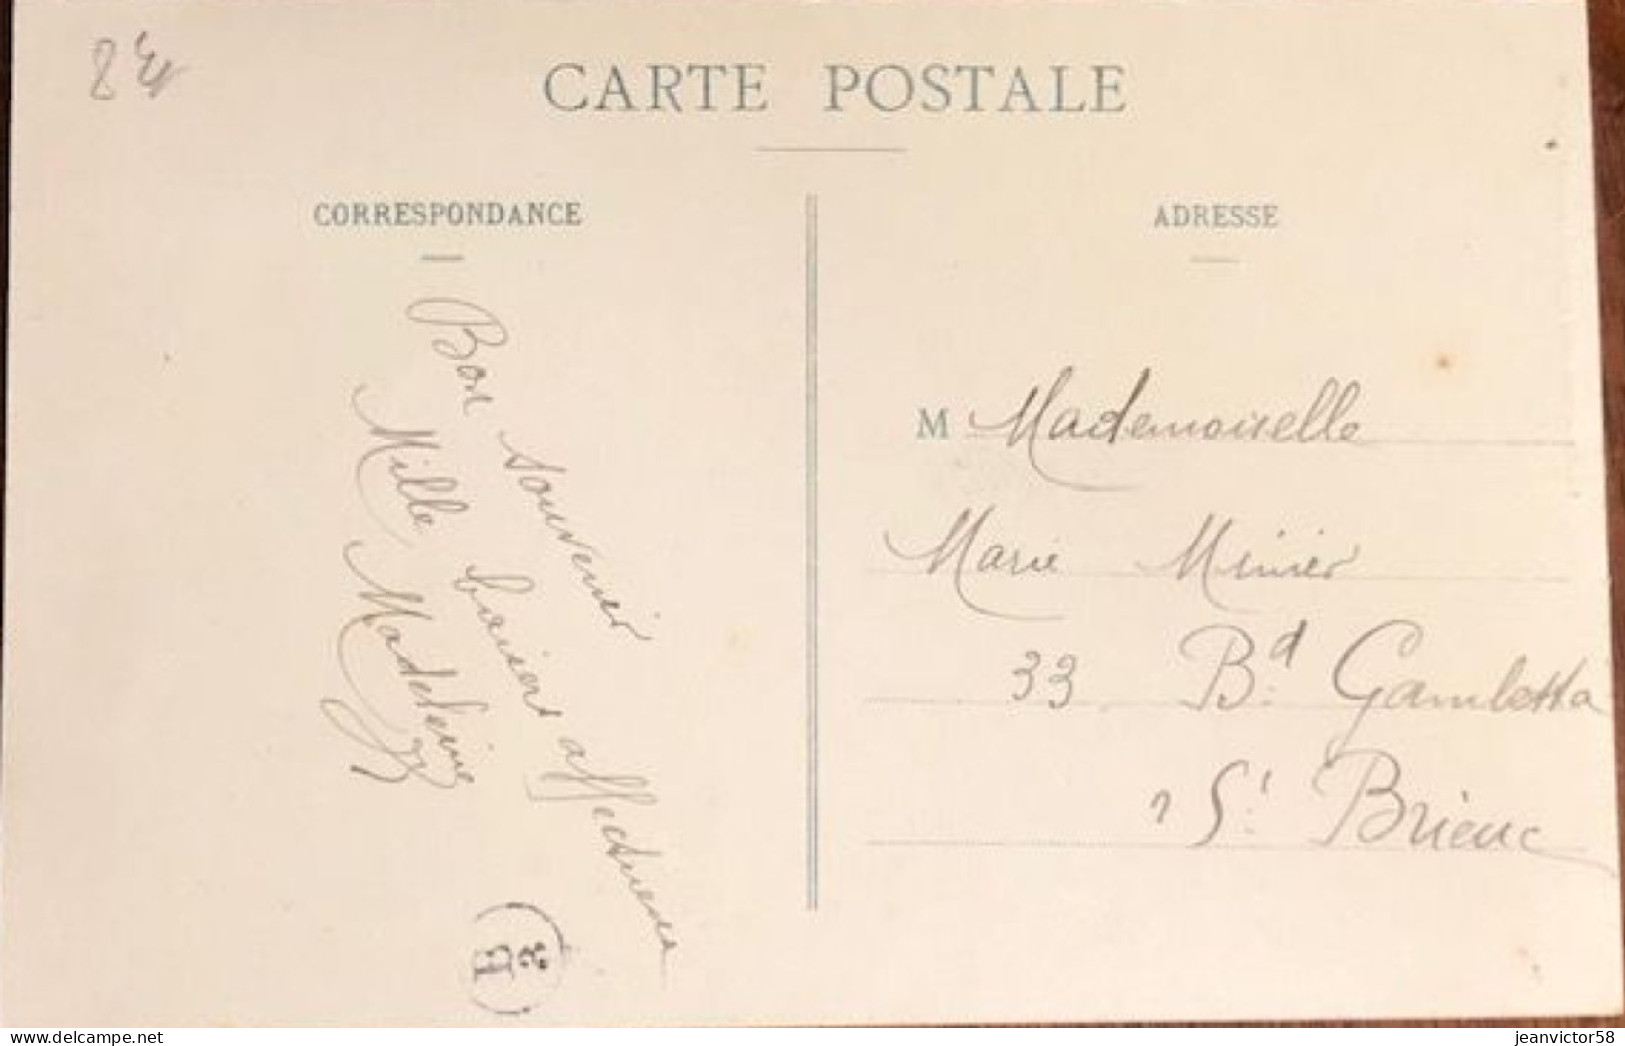 8 €
CARTE POSTALE
CORRESPONDANCE
Bon souvenir
Mille baisers affectueux
Madeleine
E
3
ADRESSE
M Mademoiselle
Marie Minier
33 Bd Gambetta
St Brieuc
delcampe.net
jeanvictor58